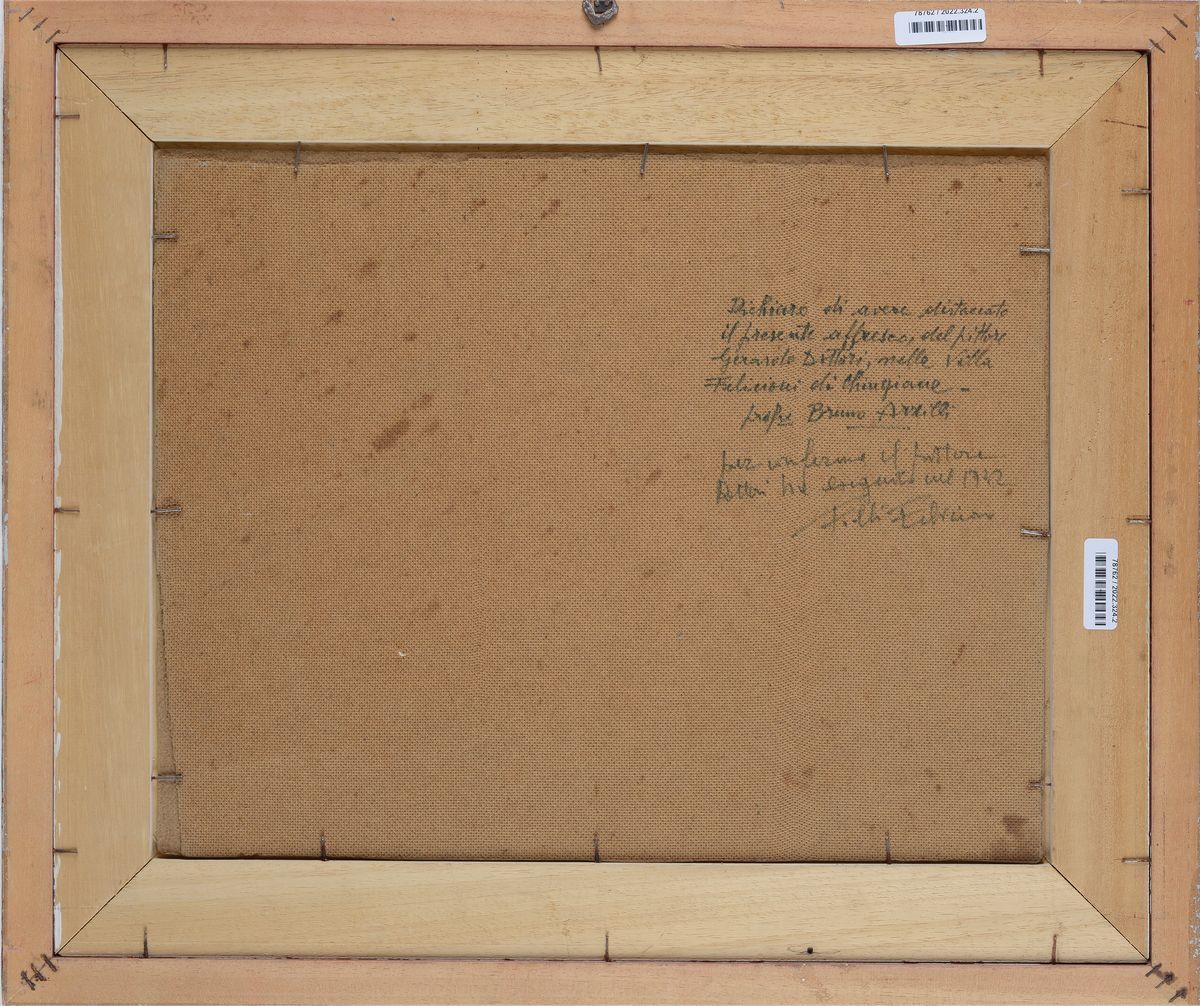 78762 / 2022.324.2
Dichiaro di avere distaccato
il presente affresco, del pittore
Gerardo Dottori, nella Villa
Felicioni di
profre Bruno
per conferma il pittore
Dottori ha eseguito nel 1942
F.lli Felicioni
78762 / 2022.324.2